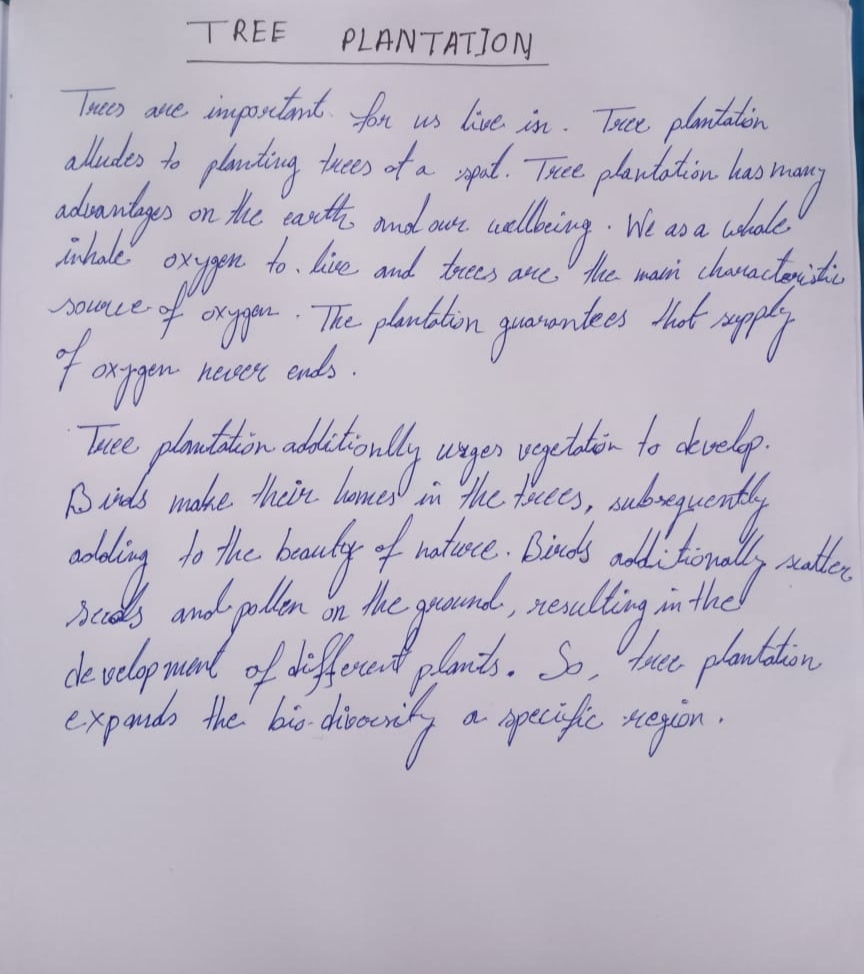 TREE PLANTATION
Trees are important for us live in. Tree plantation
alludes to planting trees at a spot. Tree plantation has many
advantages on the earth and our wellbeing. We as a whole
inhale oxygen to live and trees are the main characteristic
source of oxygen. The plantation guarantees that supply
of oxygen never ends.
Tree plantation additionlly urges vegetation to develop.
Birds make their homes in the trees, subsequently
adding to the beauty of nature. Birds additionally scatter
seeds and pollen on the ground, resulting in the
development of different plants. So, tree plantation
expands the bio-diversity a specific region.